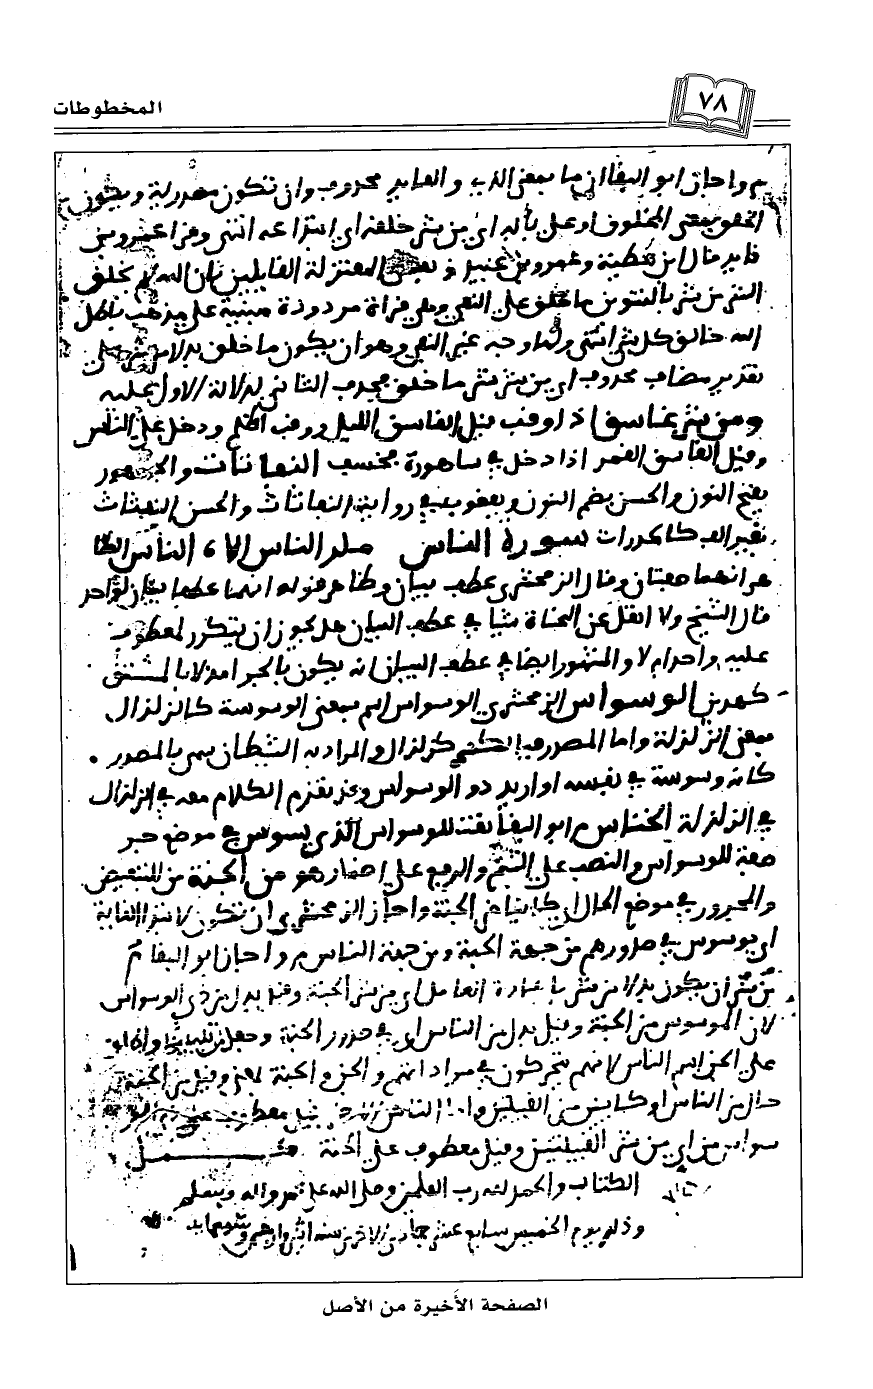 ٧٨
المخطوطات
م واجاز ابو البقا ان ما بمعنى الذي والعايد محذوف وان تكون مصدرية ويكون
الخلق بمعنى المخلوق او على بابه اي من شر خلقه اي ابتداعه انتهى وقرا عمرو بن
فايد قال ابن عطية وعمرو بن عبيد وبعض المعتزلة القايلين بان الله لم يخلق
الشر من شر بالتنوين ما خلق على النفي وهي قراة مردودة مبنية على مذهب باطل
الله خالق كل شي انتهى ولها وجه غير النفي وهو ان يكون ما خلق بدلا من شر على
تقدير مضاف محذوف اي من شر شر ما خلق فحذف الثاني لدلالة الاول عليه
ومن شر غاسق اذا وقب قيل الغاسق الليل ووقب اظلم ودخل على الناس
وقيل الغاسق القمر اذا دخل في ساهوره فخسف النفاثات والجمهور
بفتح النون والحسن بضم النون ويعقوب في رواية النافثات والحسن النفثات
بغير الف كالحدرات سورة الناس ملك الناس اله الناس الظا
هر انهما صفتان وقال الزمخشري عطف بيان وظاهر قوله انهما عطفا بيان لواحد
قال الشيخ ولا انقل عن النحاة شيا في عطف البيان هل يجوز ان يتكرر لمعطوف
عليه واحد ام لا والمشهور ايضا في عطف البيان انه يكون بالجوامد لا بالمشتق
كهذين الوسواس الزمخشري الوسواس اسم بمعنى الوسوسة كالزلزال
بمعنى الزلزلة واما المصدر فبالكسر كزلزال والمراد به الشيطان سمي بالمصدر
كانه وسوسة في نفسه او اريد ذو الوسواس وقد تقدم الكلام معه في الزلزال
في الزلزلة الخناس م ابو البقا نعت للوسواس الذي يوسوس في موضع جر
صفة للوسواس والنصب على الشتم والرفع على اضمار هو من الجنة من للتبعيض
والمجرور في موضع الحال اي كاينا من الجنة واجاز الزمخشري ان تكون لابتدا الغاية
اي يوسوس في صدورهم من جهة الجنة ومن جهة الناس م واجاز ابو البقا
من شر ان يكون بدلا من شر باعادة العامل اي من شر الجنة وقيل بدل من ذي الوسواس
لان الموسوس من الجنة وقيل بدل من الناس اي في صدور الجنة وجعل من تبيينا واطلق
على الجن اسم الناس لانهم يتحركون في مراداتهم والجن والجنة بمعنى وقيل من الجنة
حال من الناس اي كاينين من القبيلين واما الناس الاخير فقيل معطوف على ذي الو
سواس من اي من شر القبيلتين وقيل معطوف على الجنة
الكتاب والحمد لله رب العلمين وصلى الله على محمد واله وسلم
وذلك يوم الخميس سابع عشر جمادى الاخر من سنه
الصفحة الأخيرة من الأصل